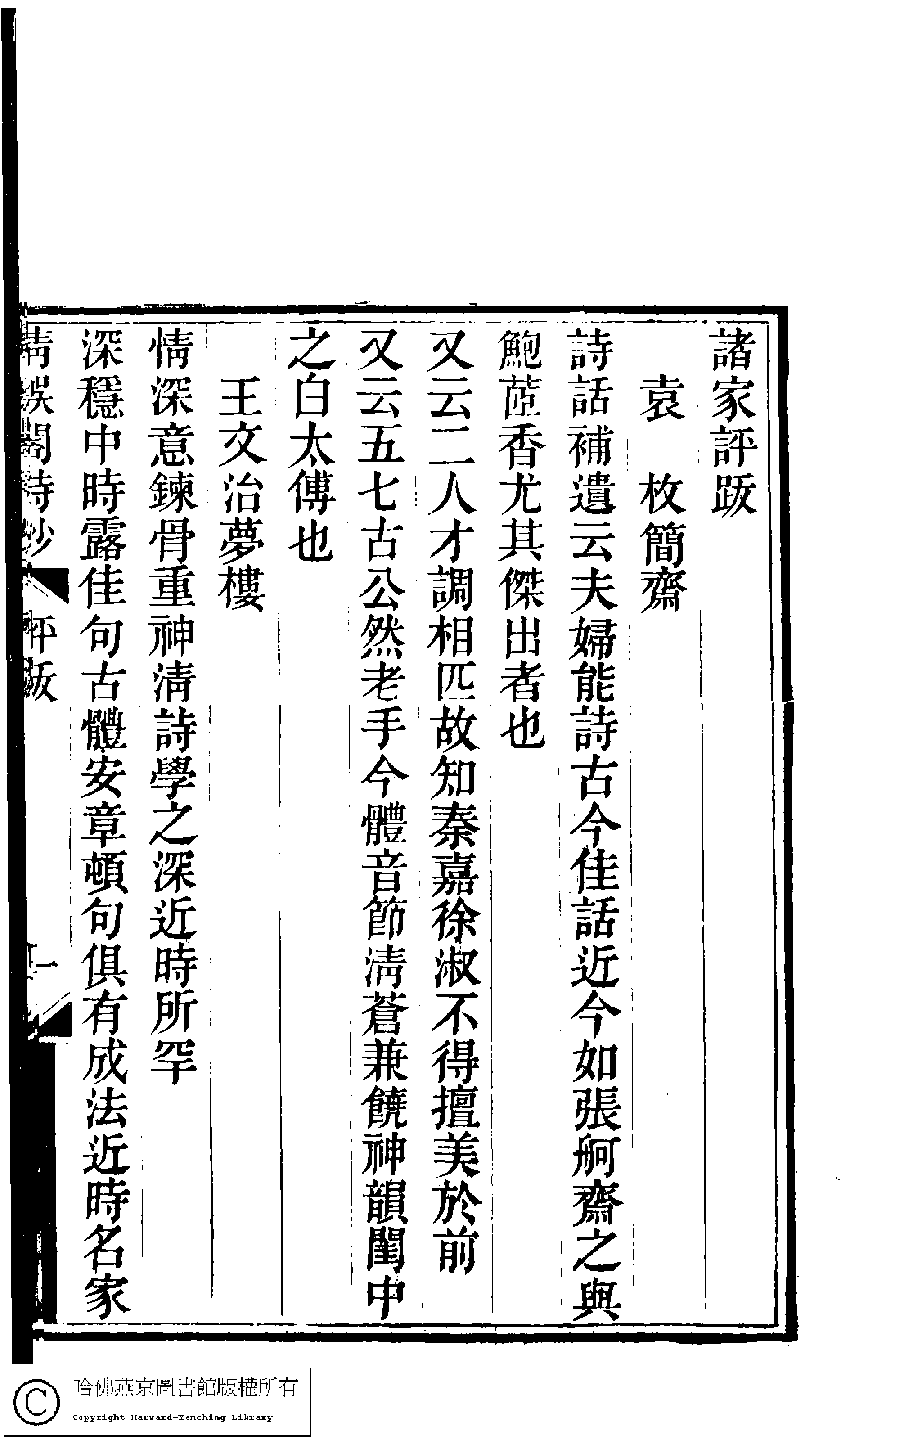 諸家評跋
袁 枚簡齋
詩話補遺云夫婦能詩古今佳話近今如張舸齋之與
鮑茝香尤其傑出者也
又云二人才調相匹故知秦嘉徐淑不得擅美於前
又云五七古公然老手今體音節淸蒼兼饒神韻閨中
之白太傅也
王文治夢樓
情深意鍊骨重神淸詩學之深近時所罕
深穩中時露佳句古體安章頓句俱有成法近時名家
清娛閣詩鈔 評跋 一
哈佛燕京圖書館版權所有
Copyright Harvard-Yenching Library